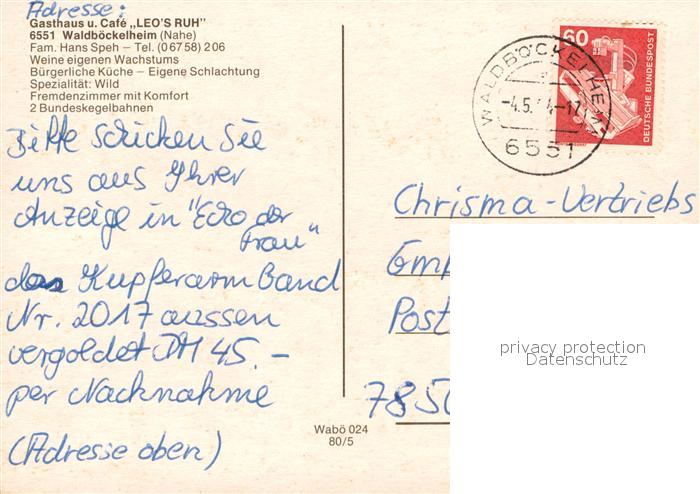 Adresse:
Gasthaus u. Café „LEO'S RUH"
6551 Waldböckelheim (Nahe)
Fam. Hans Speh – Tel. (06758) 206
Weine eigenen Wachstums
Bürgerliche Küche – Eigene Schlachtung
Spezialität: Wild
Fremdenzimmer mit Komfort
2 Bundeskegelbahnen
Bitte schicken Sie
uns aus Ihrer
Anzeige in "Echo der
Frau"
das Kupferarmband
Nr. 2017 aussen
vergoldet DM 45.-
per Nachnahme
(Adresse oben)
Wabö 024
80/5
60
DEUTSCHE BUNDESPOST
WALDBÖCKELHEIM
-4.5.
6551
Chrisma-Vertriebs
Post
785
privacy protection
Datenschutz